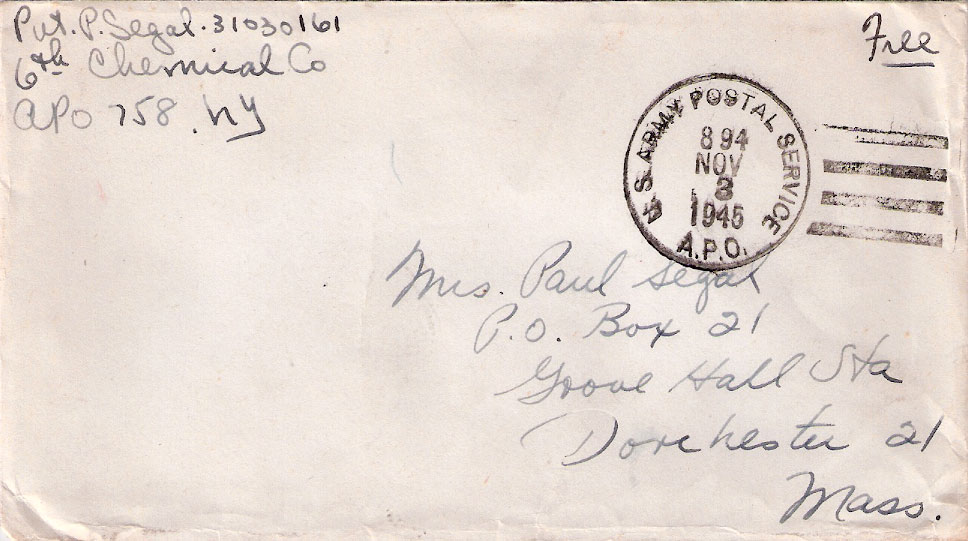 Pvt. P. Segal. 31030161
6th Chemical Co
APO 758. NY
Free
U.S. ARMY POSTAL SERVICE
894
NOV
3
1945
A.P.O.
Mrs. Paul Segal
P.O. Box 21
Grove Hall Sta
Dorchester 21
Mass.